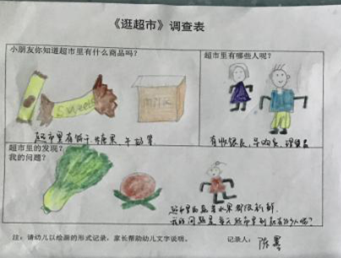 《逛超市》调查表
小朋友你知道超市里有什么商品吗?
超市里有哪些人呢?
超市里有饼干 糖果
有收银员、导购员、理货员
超市里的发现?
我的问题?
超市里蔬菜水果都很新鲜
我的问题是:每天超市里到底有多少人呢?
注:请幼儿以绘画的形式记录,家长帮助幼儿文字说明。
记录人:陈